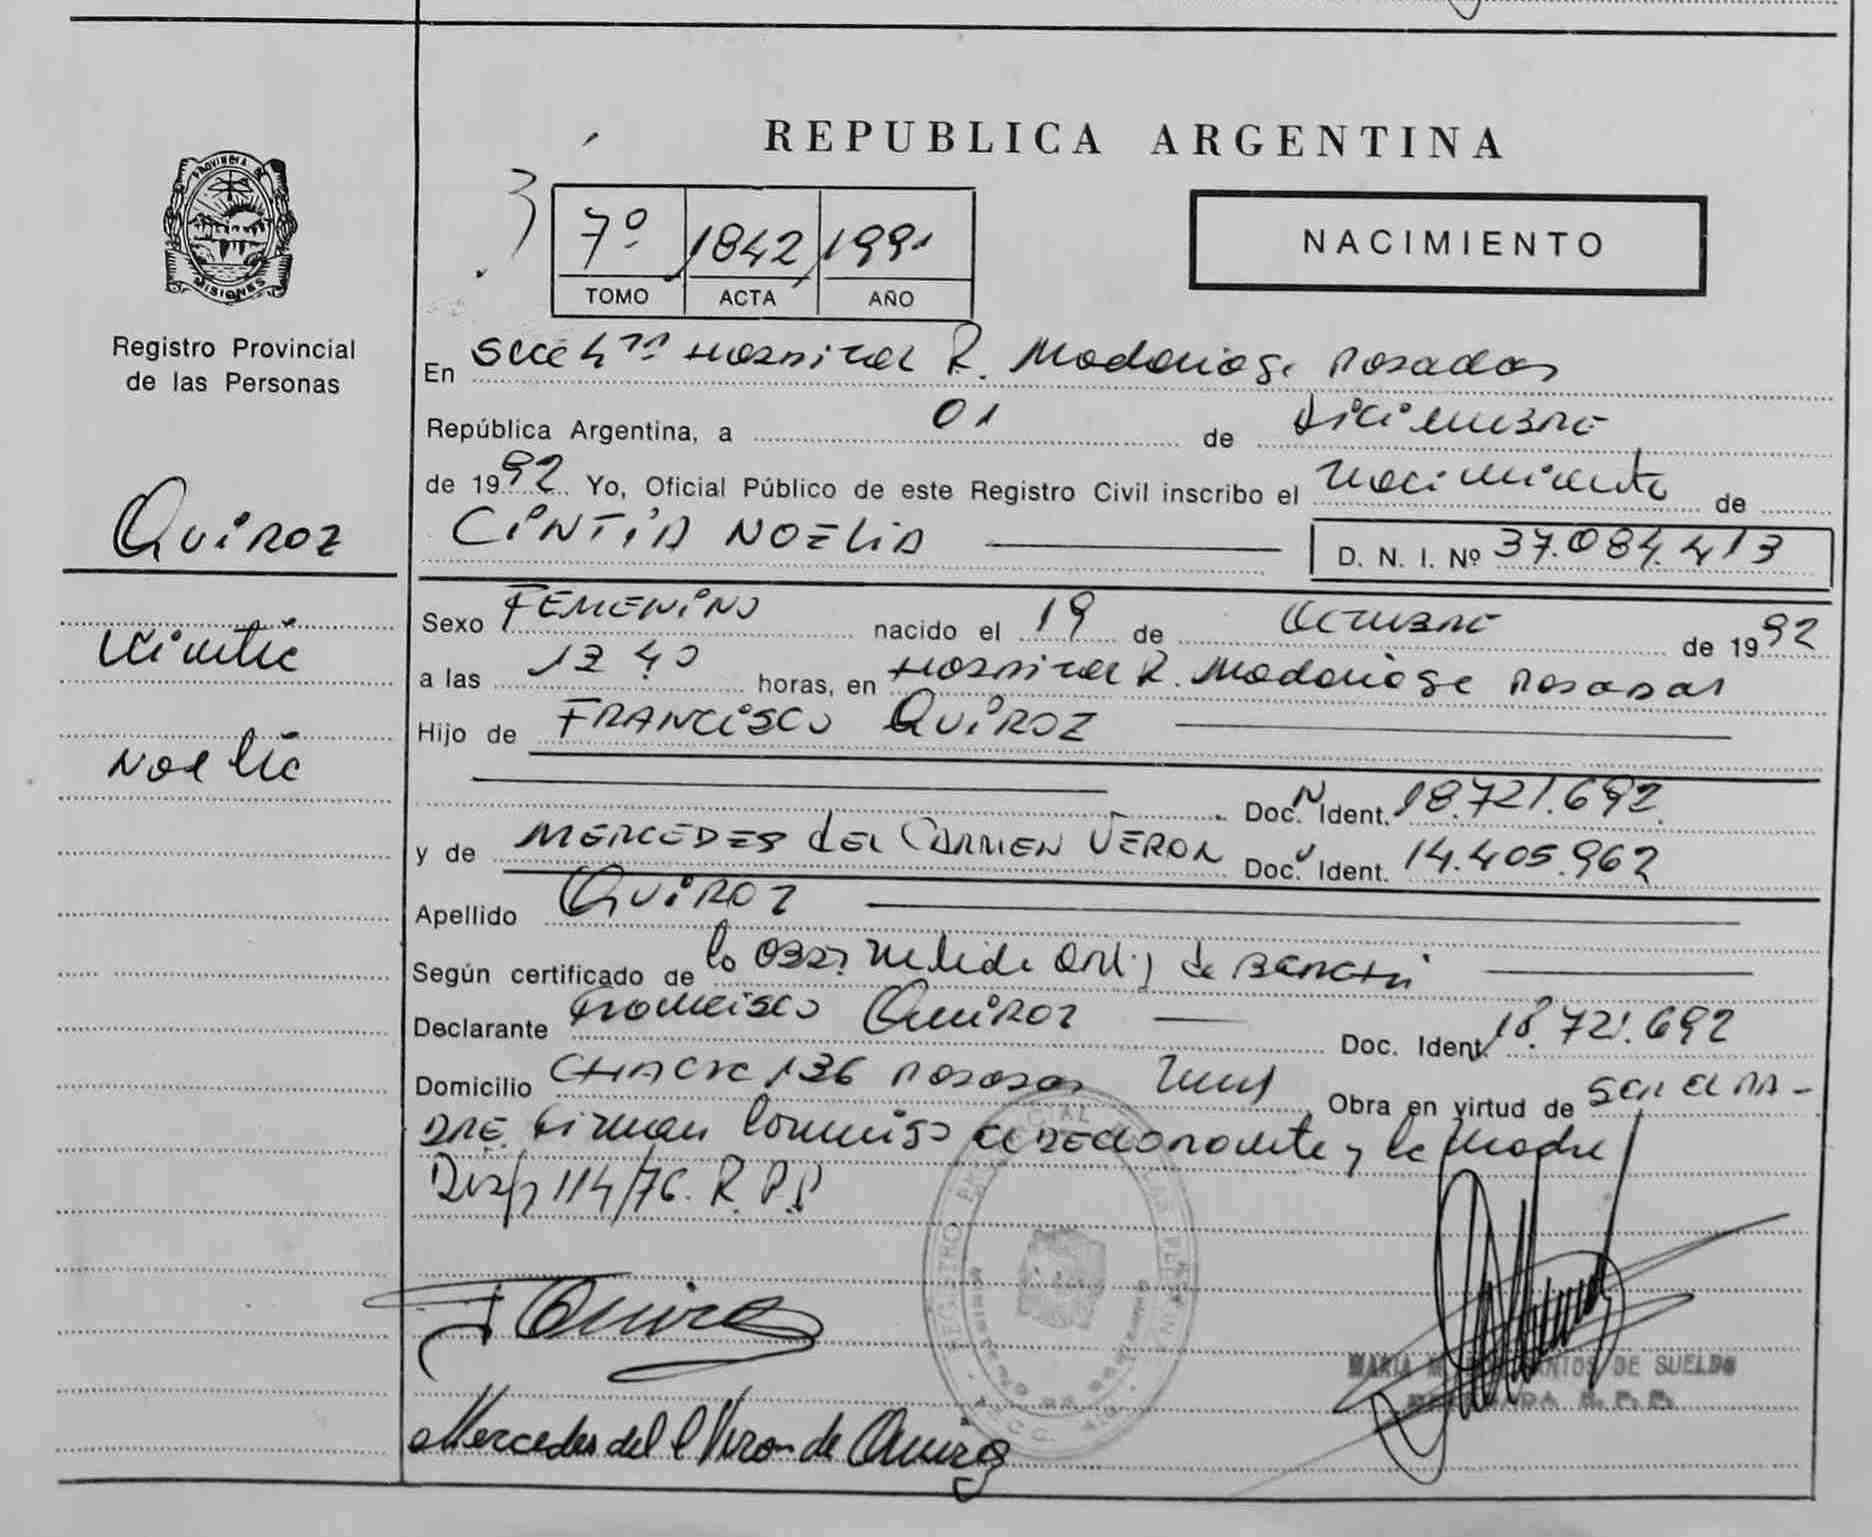 REPUBLICA ARGENTINA
PROVINCIA DE MISIONES
Registro Provincial
de las Personas
7º 1842 1991
TOMO ACTA AÑO
NACIMIENTO
En Secc 4ta Hospital R. Madariaga Posadas
República Argentina, a 01 de diciembre
de 1992 Yo, Oficial Público de este Registro Civil inscribo el nacimiento de
CINTIA NOELIA D. N. I. Nº 37.084.413
Quiroz
Cintia
Noelia
Sexo FEMENINO nacido el 19 de Octubre de 1992
a las 12 40 horas, en Hospital R. Madariaga Posadas
Hijo de FRANCISCO QUIROZ
Doc. Ident. 18.721.692
y de MERCEDES del CARMEN VERON Doc. Ident. 14.405.962
Apellido QUIROZ
Según certificado de la Obst. de
Declarante Francisco Quiroz Doc. Ident. 18.721.692
Domicilio Chacra 136 Posadas Mnes Obra en virtud de ser el pa-
dre. Firman conmigo el declarante y la madre
Disp 114/76. R.P.P
F Quiroz
MARIA SANTOS DE SUELDO
DELEGADA R.P.P.
Mercedes del C Veron de Quiroz